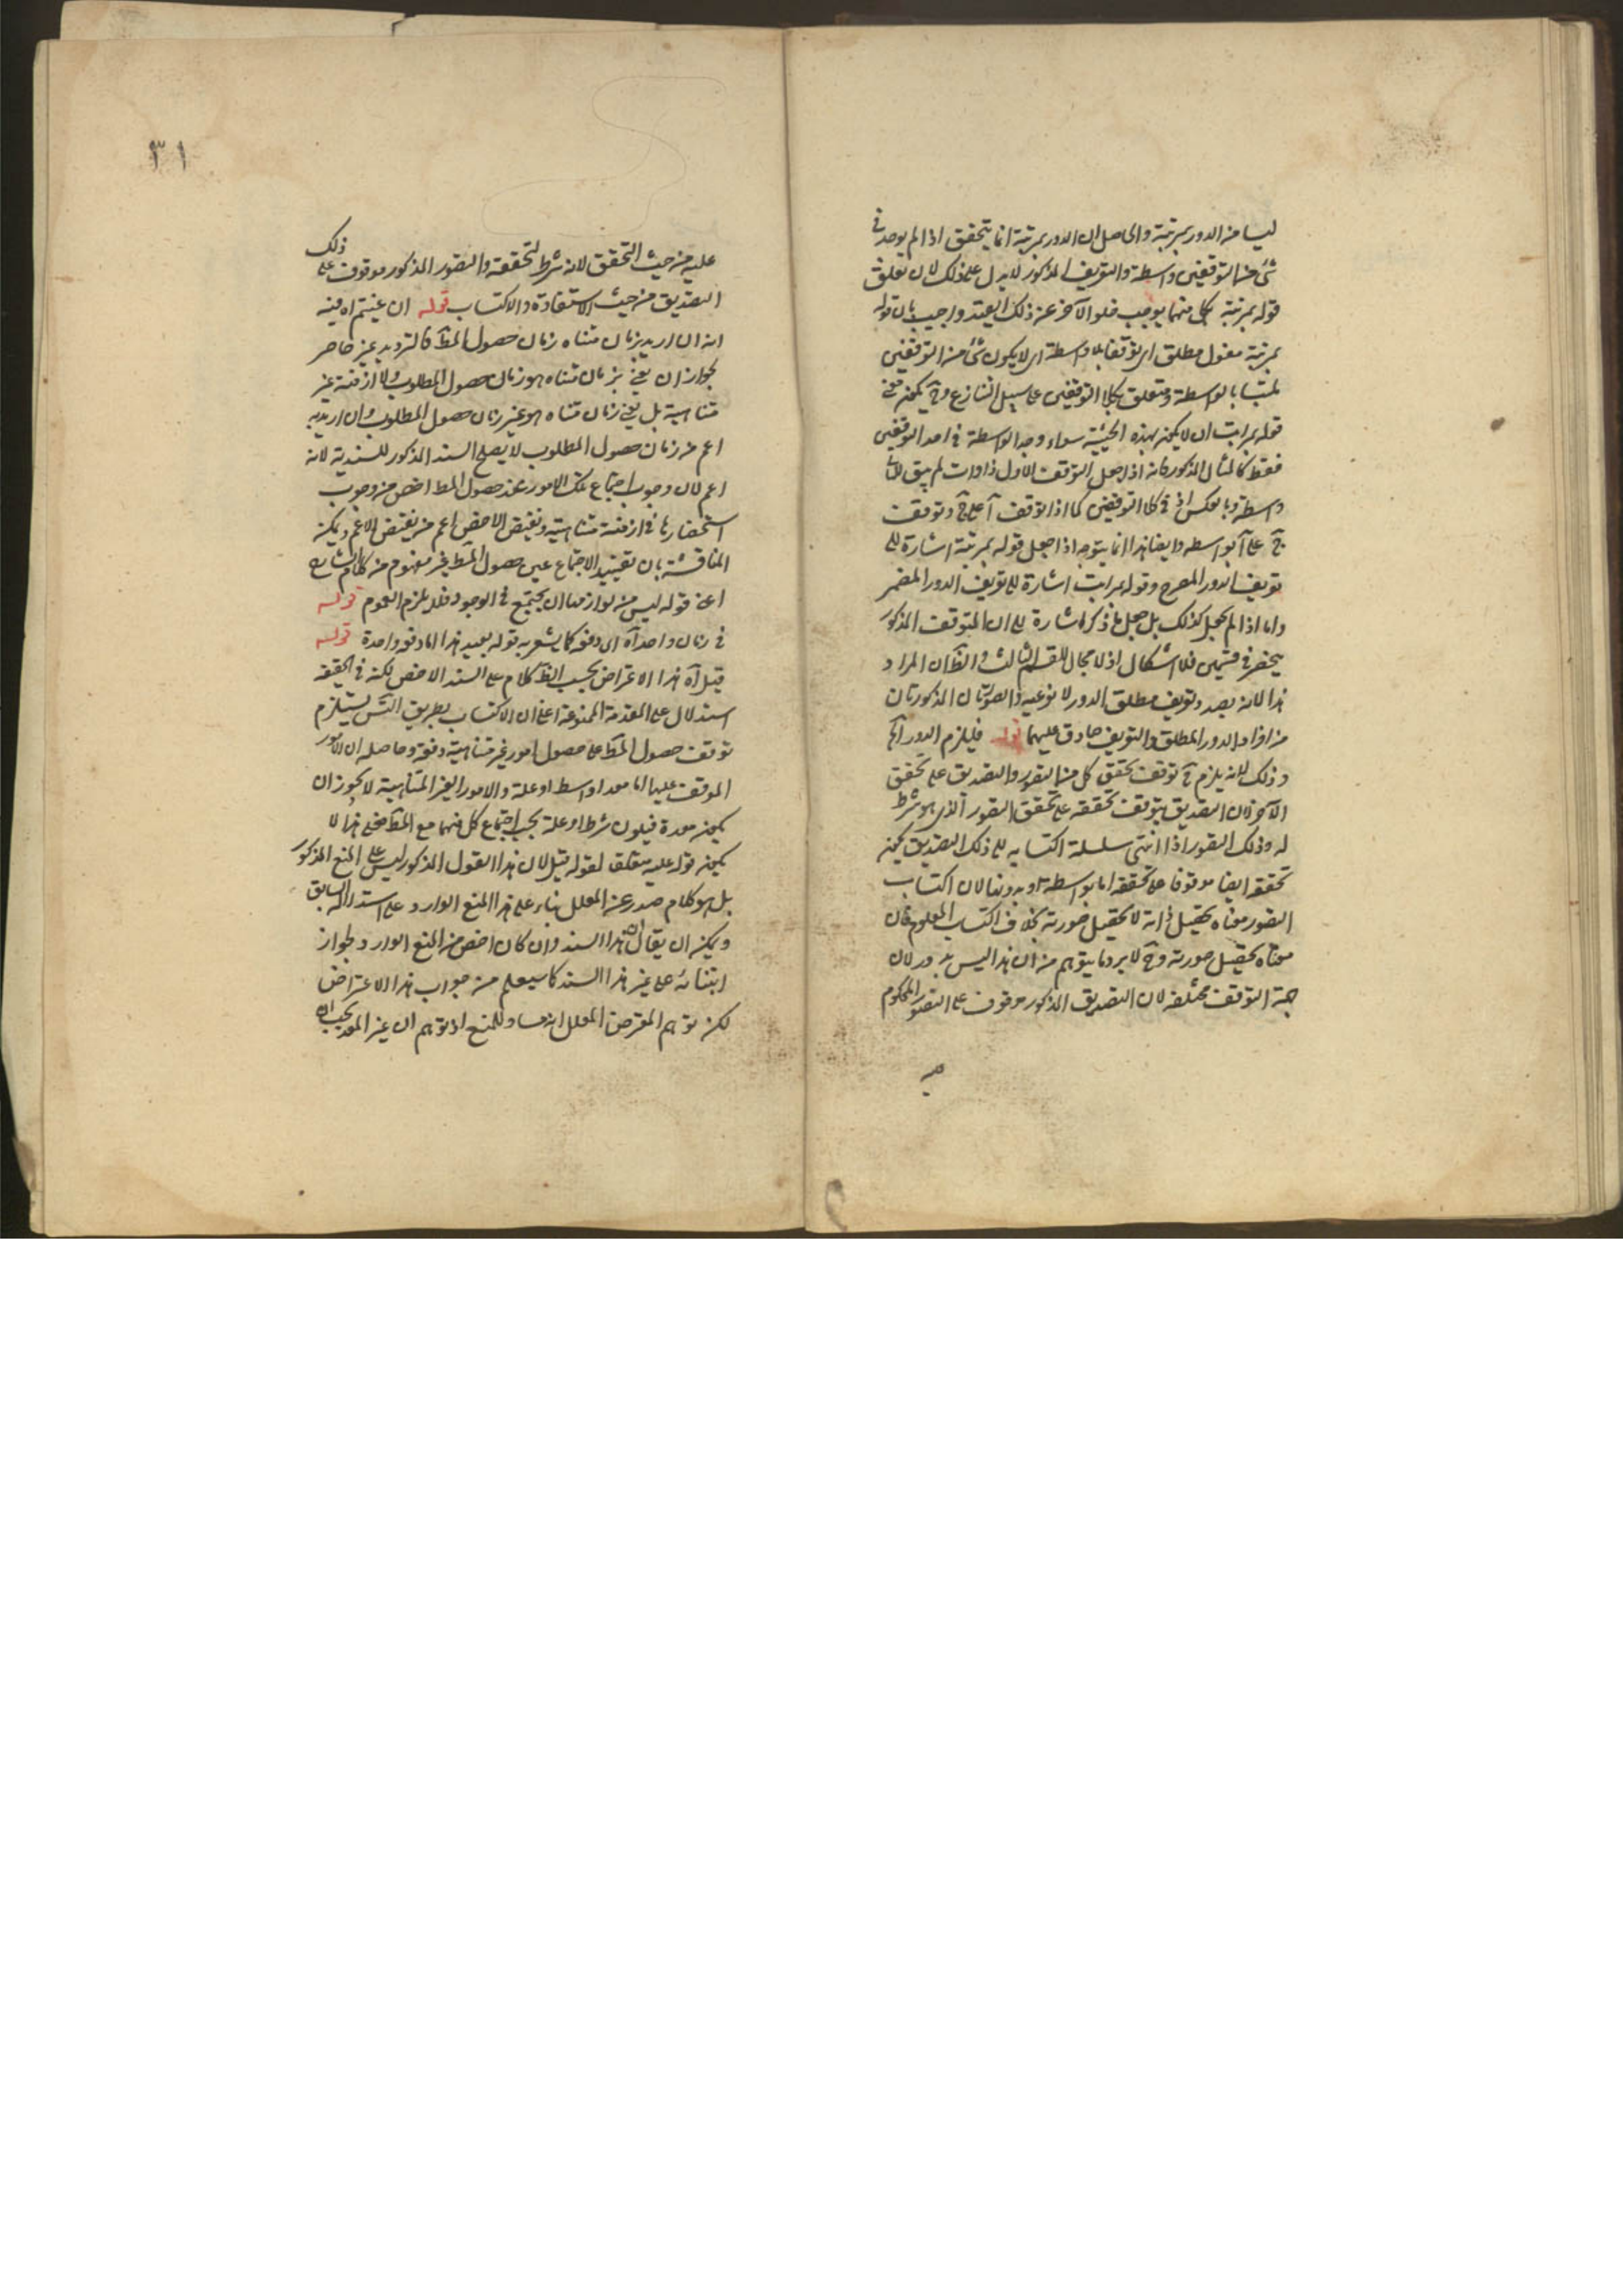 ليسا من الدور بمرتبة والحاصل ان الدور بمرتبة انما يتحقق اذا لم يوجد في
شئ من التوقفين واسطة والتعريف المذكور لا يدل على ذلك لان تعلق
قوله بمرتبة بكل منهما يوجب خلو الآخر عن ذلك القيد واجيب بان قوله
بمرتبة مفعول مطلق اى توقفا بلا واسطة اى لا يكون شئ من التوقفين
ملتبسا بالواسطة ومتعلق بكلا التوقفين على سبيل التنازع وح يكون معنى
قوله بمراتب ان لا يكون بهذه الحيثية سواء وجد الواسطة فى احد التوقفين
فقط كالمثال المذكور فانه اذا جعل التوقف الاول ذا وات لم يبق للثانى
واسطة وبالعكس او فى كلا التوقفين كما اذا توقف آ على ج وتوقف
ج على آ بواسطة وايضا هذا انما يتوجه اذا جعل قوله بمرتبة اشارة الى
تعريف الدور المصرح وقوله بمراتب اشارة الى تعريف الدور المضمر
واما اذا لم يجعل كذلك بل جعل ما ذكر اشارة الى ان التوقف المذكور
ينحصر فى قسمين فلا اشكال اذ لا مجال للقسم الثالث والظ ان المراد
هذا لانه بصدد تعريف مطلق الدور لا نوعيه والصورتان المذكورتان
من افراد الدور المطلق والتعريف صادق عليهما قوله فيلزم الدور الخ
وذلك لانه يلزم ح توقف تحقق كل من التصور والتصديق على تحقق
الآخر لان التصديق يتوقف تحققه على تحقق التصور الذى هو شرط
له وذلك التصور اذا انتهى سلسلة اكتسابه الى ذلك التصديق يكون
تحققه ايضا موقوفا على تحققه اما بواسطة او بدونها لان اكتساب
التصور معناه تحصيل ذاته لا تحصيل صورته بخلاف اكتساب المعلوم فان
معناه تحصيل صورته وح لا يرد ما يتوهم من ان هذا ليس بدور لان
جهة التوقف مختلفة لان التصديق المذكور موقوف على التصور المحكوم
عليه
٣١
عليه من حيث التحقق لانه شرط لتحققه والتصور المذكور موقوف على ذلك
التصديق من حيث الاستفادة والاكتساب قوله ان عنيتم اه فيه
انه ان اريد بزمان متناه زمان حصول المط فالترديد غير حاصر
لجواز ان يعنى بزمان متناه هو زمان حصول المطلوب ولا ازمنة غير
متناهية بل يعنى زمان متناه هو غير زمان حصول المطلوب وان اريد به
اعم من زمان حصول المطلوب لا يصلح السند المذكور للسندية لانه
اعم لان وجوب اجتماع تلك الامور عند حصول المط اخص من وجوب
استحضارها فى ازمنة متناهية ونقيض الاخص اعم من نقيض الاعم ويمكن
المناقشة بان تقييد الاجتماع عين حصول المط غير مفهوم من كلام الشارح
اعنى قوله ليس من لوازمها ان يجتمع فى الوجود فلا يلزم العموم قوله
فى زمان واحد آه اى دفعة كما يشعر به قوله بعيد هذا اما دفعة واحدة قوله
قيل آه هذا الاعتراض بحسب الظ كلام على السند الاخص لكنه فى الحقيقة
استدلال على المقدمة الممنوعة اعنى ان الاكتساب بطريق التس يستلزم
توقف حصول المط على حصول امور غير متناهية دفعة وحاصله ان الامور
الموقوف عليها اما معد او بسط او علة والامور الغير المتناهية لا يجوز ان
يكون معدة فيكون شرطا او علة يجب اجتماع كل منهما مع المط فعلى هذا لا
يكون قوله عليه متعلقا لقوله قيل لان هذا القول المذكور ليس على المنع المذكور
بل هو كلام صدر عن المعلل بناء على هذا المنع الوارد على استدلاله السابق
ويمكن ان يقال ان هذا السند وان كان اخص من المنع الوارد لجواز
ابتنائه على غير هذا السند كما سيعلم من جواب هذا الاعتراض
لكن توهم المعترض المعلل انه مساو للمنع اذ توهم ان غير المعد يجب ان